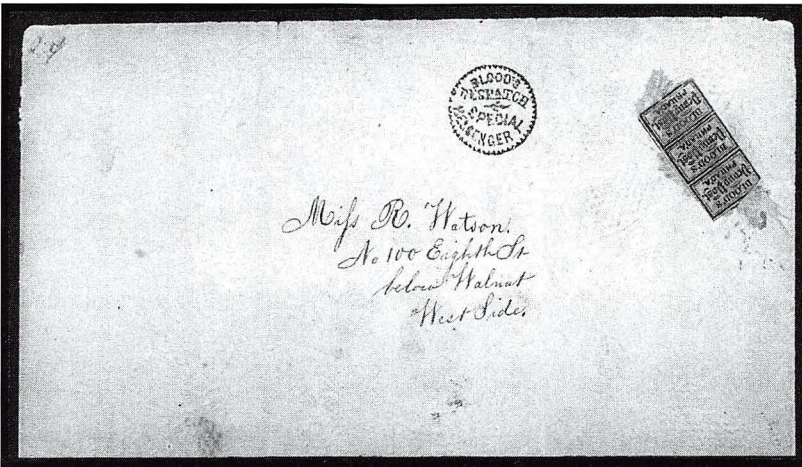 BLOOD'S
DESPATCH
SPECIAL
MESSENGER
BLOOD'S
PHILADA
BLOOD'S
PHILADA
BLOOD'S
PHILADA
Miſs R. Watson.
No 100 Eighth St
below Walnut
West Side.